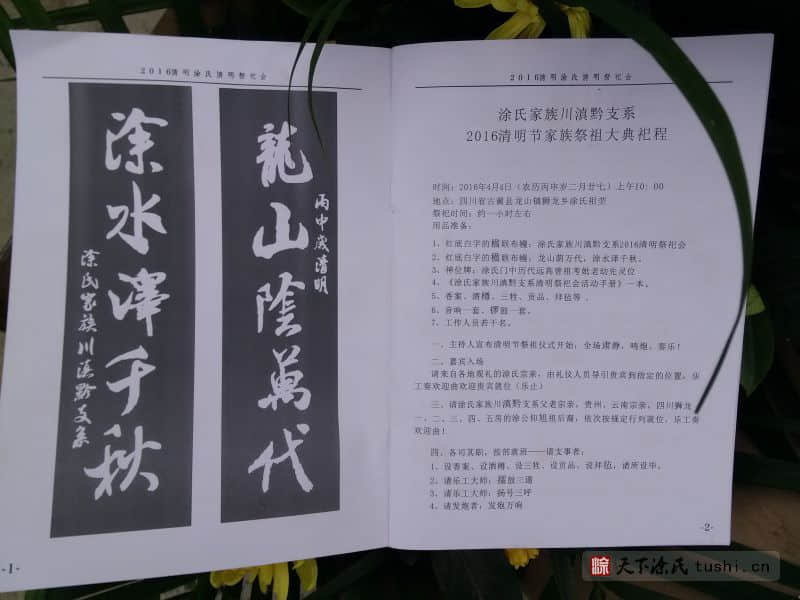 2016清明涂氏清明祭祀会
龍山陰萬代
丙申歲清明
涂水澤千秋
涂氏家族川滇黔支系
-1-
2016清明涂氏清明祭祀会
涂氏家族川滇黔支系
2016清明节家族祭祖大典祀程
时间：2016年4月4日（农历丙申岁二月廿七）上午10：00
地点：四川省古蔺县龙山镇狮龙乡涂氏祖茔
祭祀时间：约一小时左右
用品准备：
1、红底白字的楹联布幔：涂氏家族川滇黔支系2016清明祭祀会
2、红底白字的楹联布幔：龙山荫万代，涂水泽千秋。
3、神位牌：涂氏门中历代远高曾祖考妣老幼先灵位
4、《涂氏家族川滇黔支系清明祭祀会活动手册》一本。
5、香案、酒樽、三牲、贡品、拜毡等 。
6、音响一套、锣鼓一套。
7、工作人员若干名。
一、主持人宣布清明节祭祖仪式开始：全场肃静、鸣炮、奏乐！
二、嘉宾入场
请来自各地观礼的涂氏宗亲，由礼仪人员导引贵宾到指定的位置，乐
工奏欢迎曲欢迎贵宾就位（乐止）
三、请涂氏家族川滇黔支系父老宗亲，贵州、云南宗亲，四川狮龙
一、二、三、四、五房的涂公仰旭祖后裔，依次按规定行列就位，乐工奏
欢迎曲！
四、各司其职，按部就班——请支事者：
1、设香案、设酒樽、设三牲、设贡品、设拜毡，诸所设毕。
2、请乐工大师：擂鼓三通
3、请乐工大师：扬号三呼
4、请发炮者：发炮万响
-2-
天下涂氏 tushi.cn